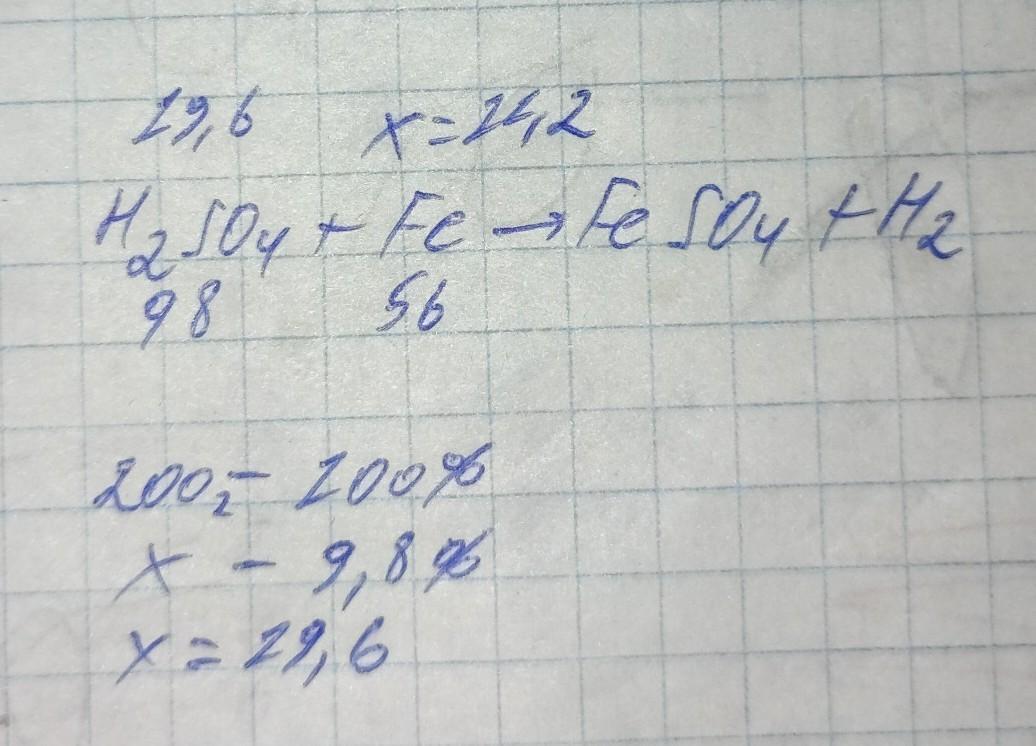 19,6 x = 11,2
H₂SO₄ + Fe → FeSO₄ + H₂
98 56
200г - 100%
x - 9,8%
x = 19,6